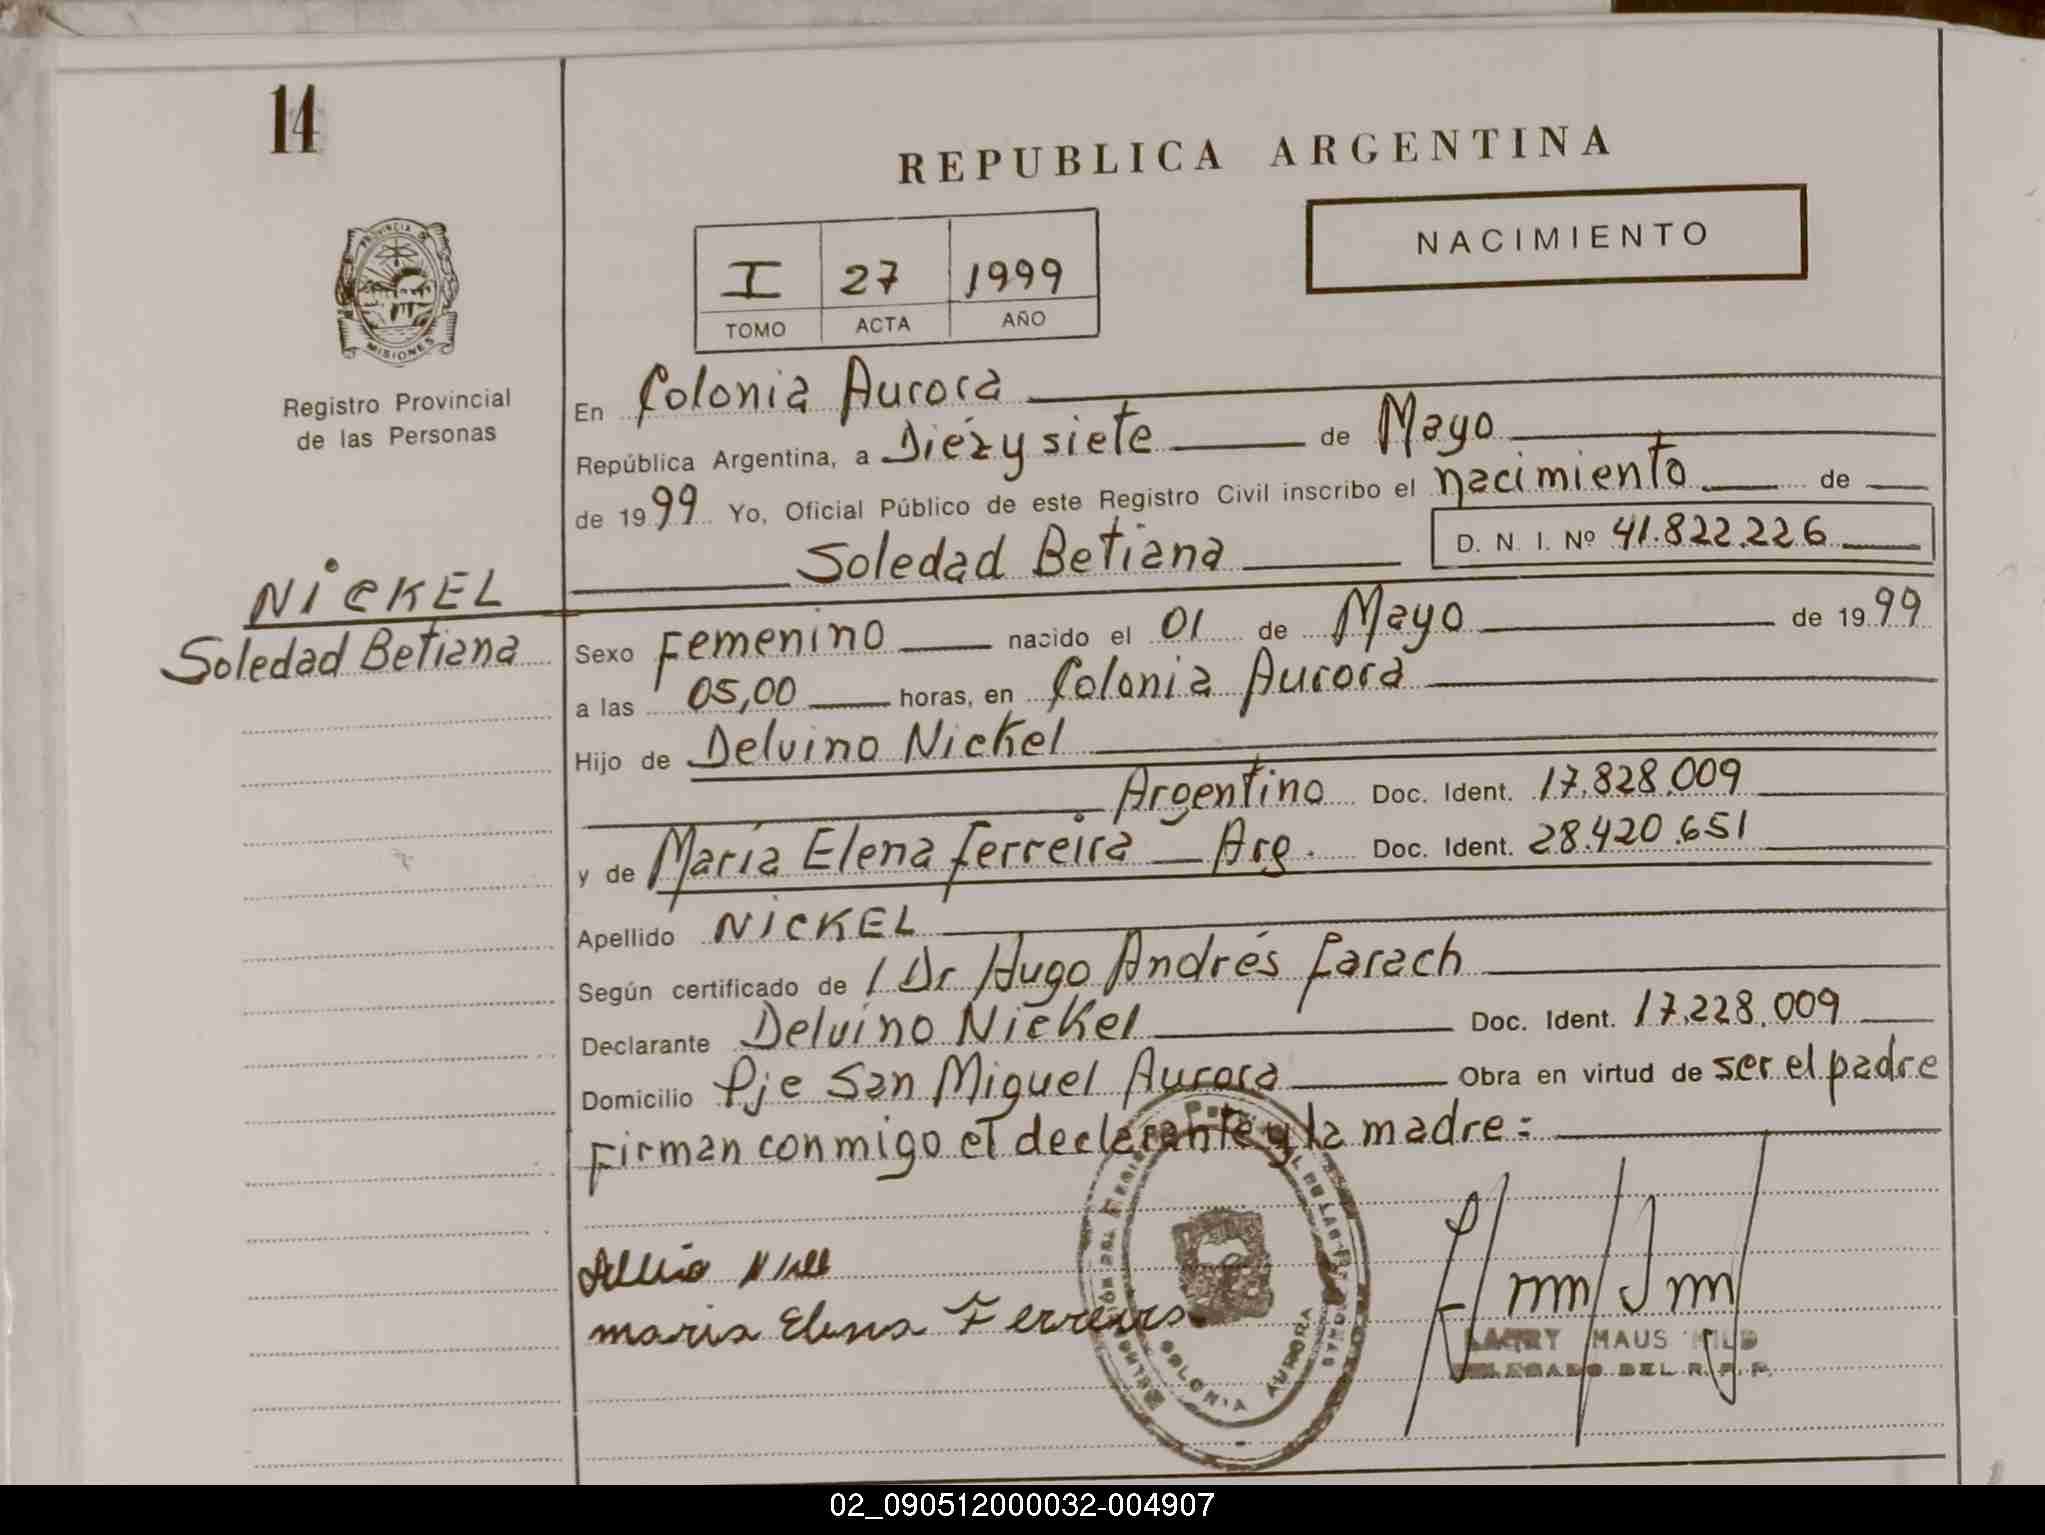 14
REPUBLICA ARGENTINA
NACIMIENTO
I 27 1999
TOMO ACTA AÑO
PROVINCIA DE
MISIONES
Registro Provincial
de las Personas
NiCKEL
Soledad Betiana
En Colonia Aurora
República Argentina, a Diéz y siete de Mayo
de 1999 Yo, Oficial Público de este Registro Civil inscribo el nacimiento de
Soledad Betiana D. N. I. Nº 41.822.226
Sexo Femenino nacido el 01 de Mayo de 1999
a las 05,00 horas, en Colonia Aurora
Hijo de Delvino Nickel
Argentino Doc. Ident. 17.828.009
y de María Elena Ferreira Arg. Doc. Ident. 28.420.651
Apellido NiCKEL
Según certificado de / Dr Hugo Andrés Farach
Declarante Delvino Nickel Doc. Ident. 17.228.009
Domicilio Pje San Miguel Aurora Obra en virtud de ser el padre
Firman conmigo el declarante y la madre:
maria Elena Ferreira
COLONIA AURORA
LARRY MAUS HILD
DELEGADO DEL R. P. P.
02_090512000032-004907